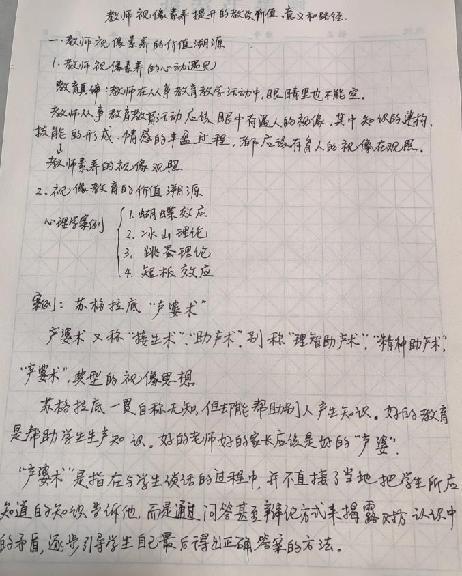 教师视像素养提升的教学价值、意义和路径.
一、教师视像素养的价值溯源
1. 教师视像素养的心动遇见
教育真谛:教师在从事教育教学活动中,眼睛里也不能空.
教师从事教育教学活动应该眼中有人的视像.其中知识的建构,
技能的形成、情感的丰盈过程,都应该有育人的视像在观照.
教师素养的视像观照
2. 视像教育的价值溯源
心理学案例
1. 蝴蝶效应
2. 冰山理论
3. 跳蚤理论
4. 短板效应
案例:苏格拉底“产婆术”
产婆术又称“接生术”、“助产术”,别称“理智助产术”、“精神助产术”,
“产婆术”,典型的视像思想
苏格拉底一贯自称无知,但却能帮助别人产生知识。好的教育
是帮助学生生产知识。好的老师好的家长应该是好的“产婆”.
“产婆术”是指在与学生谈话的过程中,并不直接了当地把学生所应
知道的知识告诉他,而是通过问答甚至辩论方式来揭露对方认识中
的矛盾,逐步引导学生自己最后得出正确答案的方法。